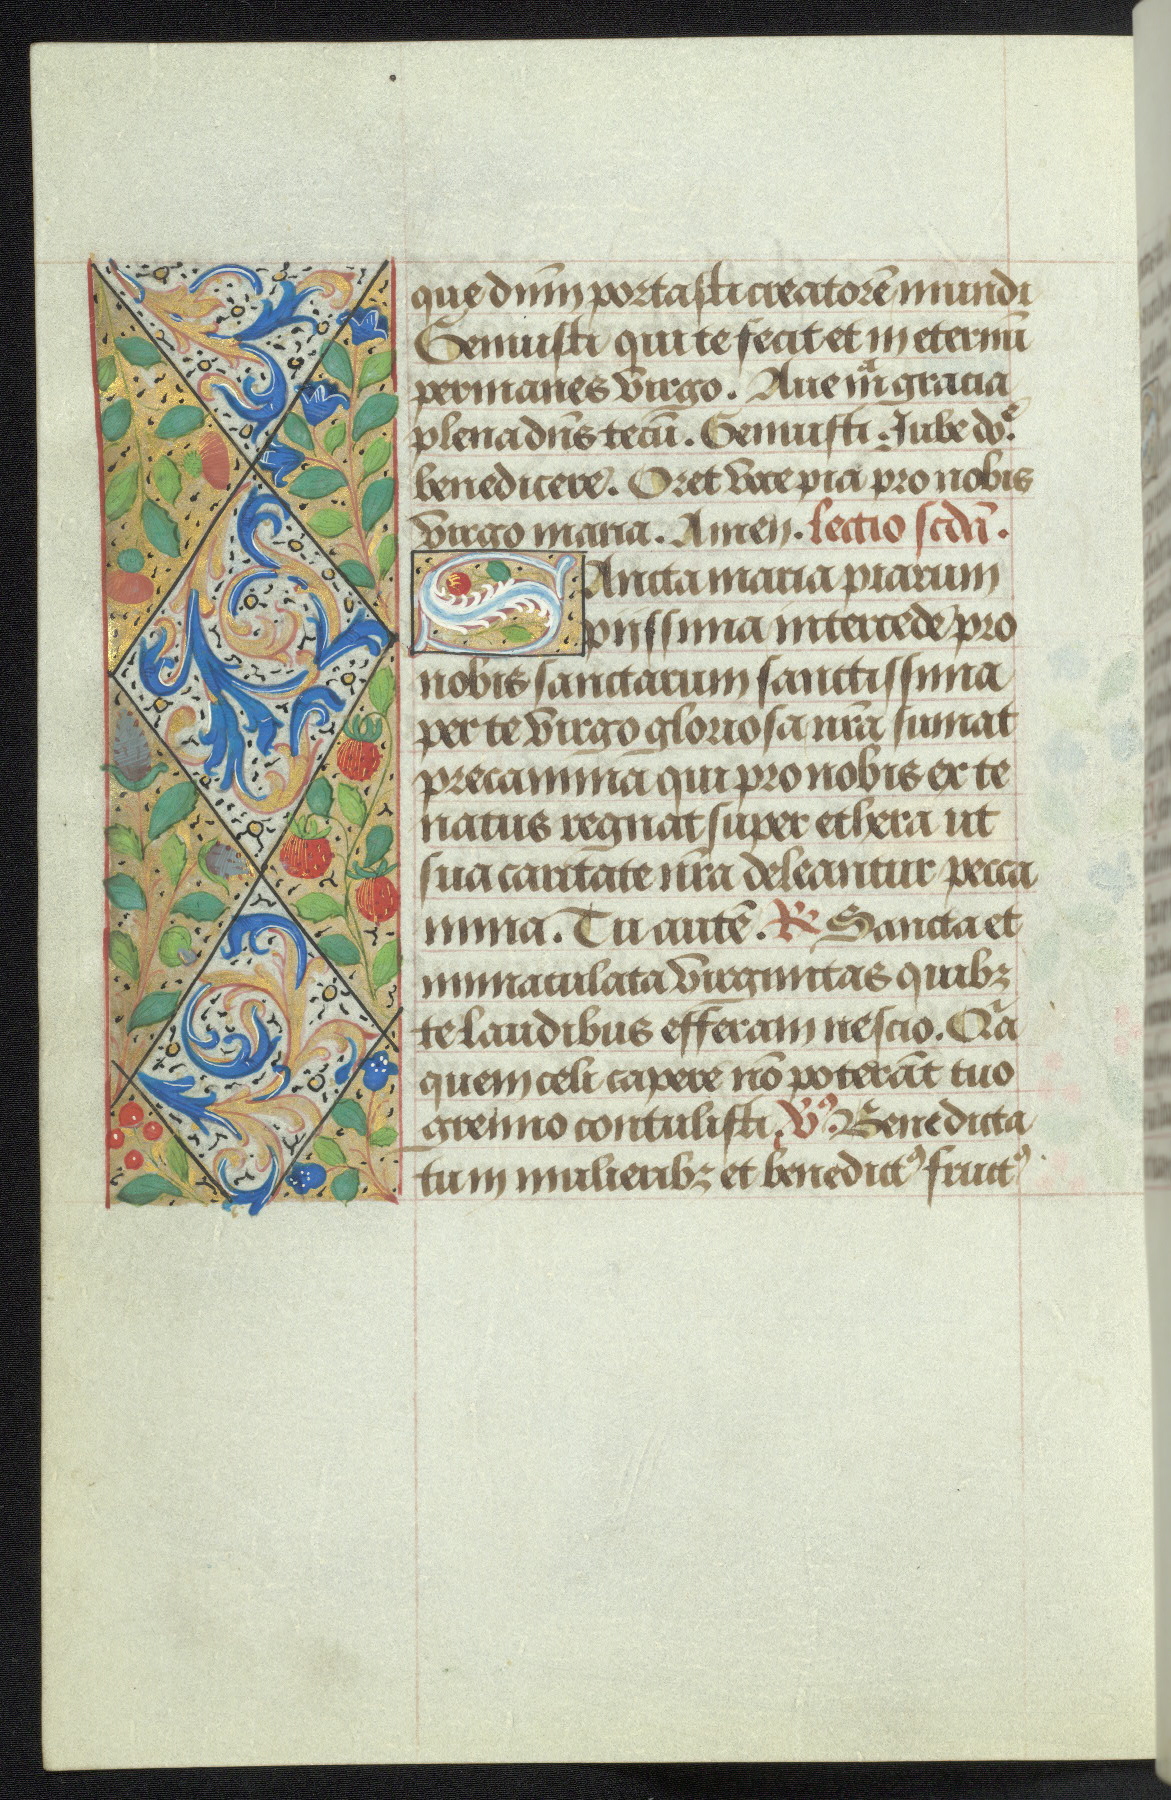 que dnm̄ portasti creatorē mundi
Genuisti qui te fecit et in eternū
permanes virgo. Aue mª gracia
plena dn̄s tecū. Genuisti. Jube dōe
benedicere. Oret voce pia pro nobis
virgo maria. Amen. lectio scdā.
SAncta maria piarum
piissima intercede pro
nobis sanctarum sanctissima
per te virgo gloriosa nr̄a sumat
precamina qui pro nobis ex te
natus regnat super ethera ut
sua caritate nr̄a deleantur pecca
mina. Tu autē. R Sancta et
immaculata virginitas quibꝫ
te laudibus efferam nescio. Qr̄a
quem celi capere nō poterāt tuo
gremio contulisti. V⁹. Benedicta
tu in mulieribꝫ et benedict⁹ fruct⁹